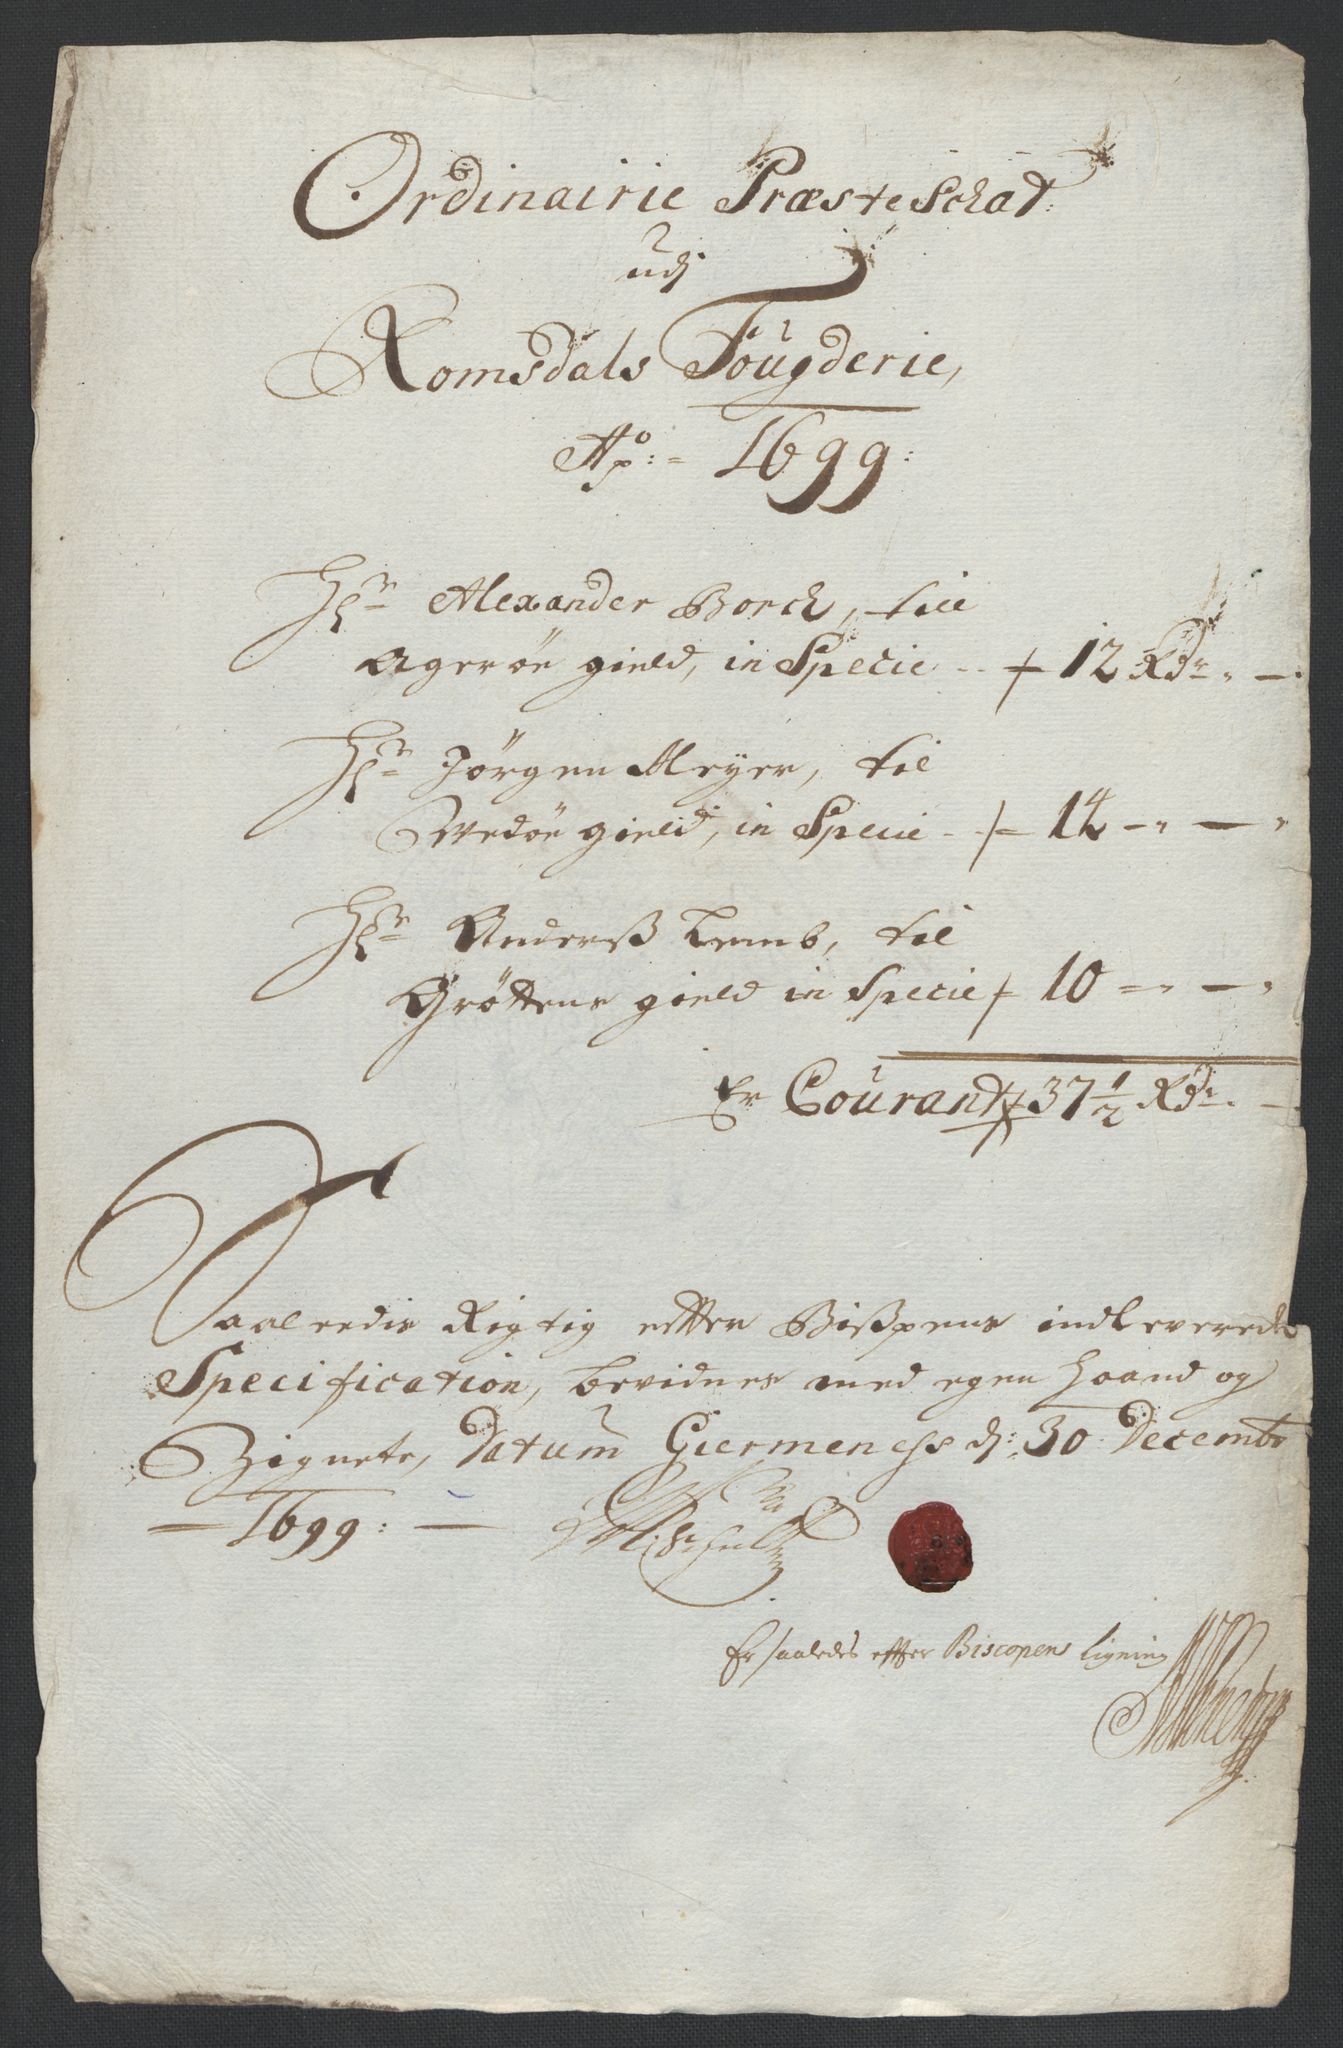 Ordinairie Præste Schat
udj
Romsdals Fougderie,
Aō: = 1699:
Hr: Alexander Borch, till
Agerøe gield, in Specie - 12 Rdr
Hr: Jørgen Meyer, til
Wedøe gield, in Specie - 14 - -
Hr: Anderß Lemb, til
Grøttens gield in Specie 10 - -
Er Courant 37 1/2 Rdr.
Saaledis Rigtig efter Bißpens indleverede
Specification, bevidnes med egen haand og
Zignete, Datum Giermenes d: 30 Decembr
1699:
Er saaledes efter Biscopens ligning